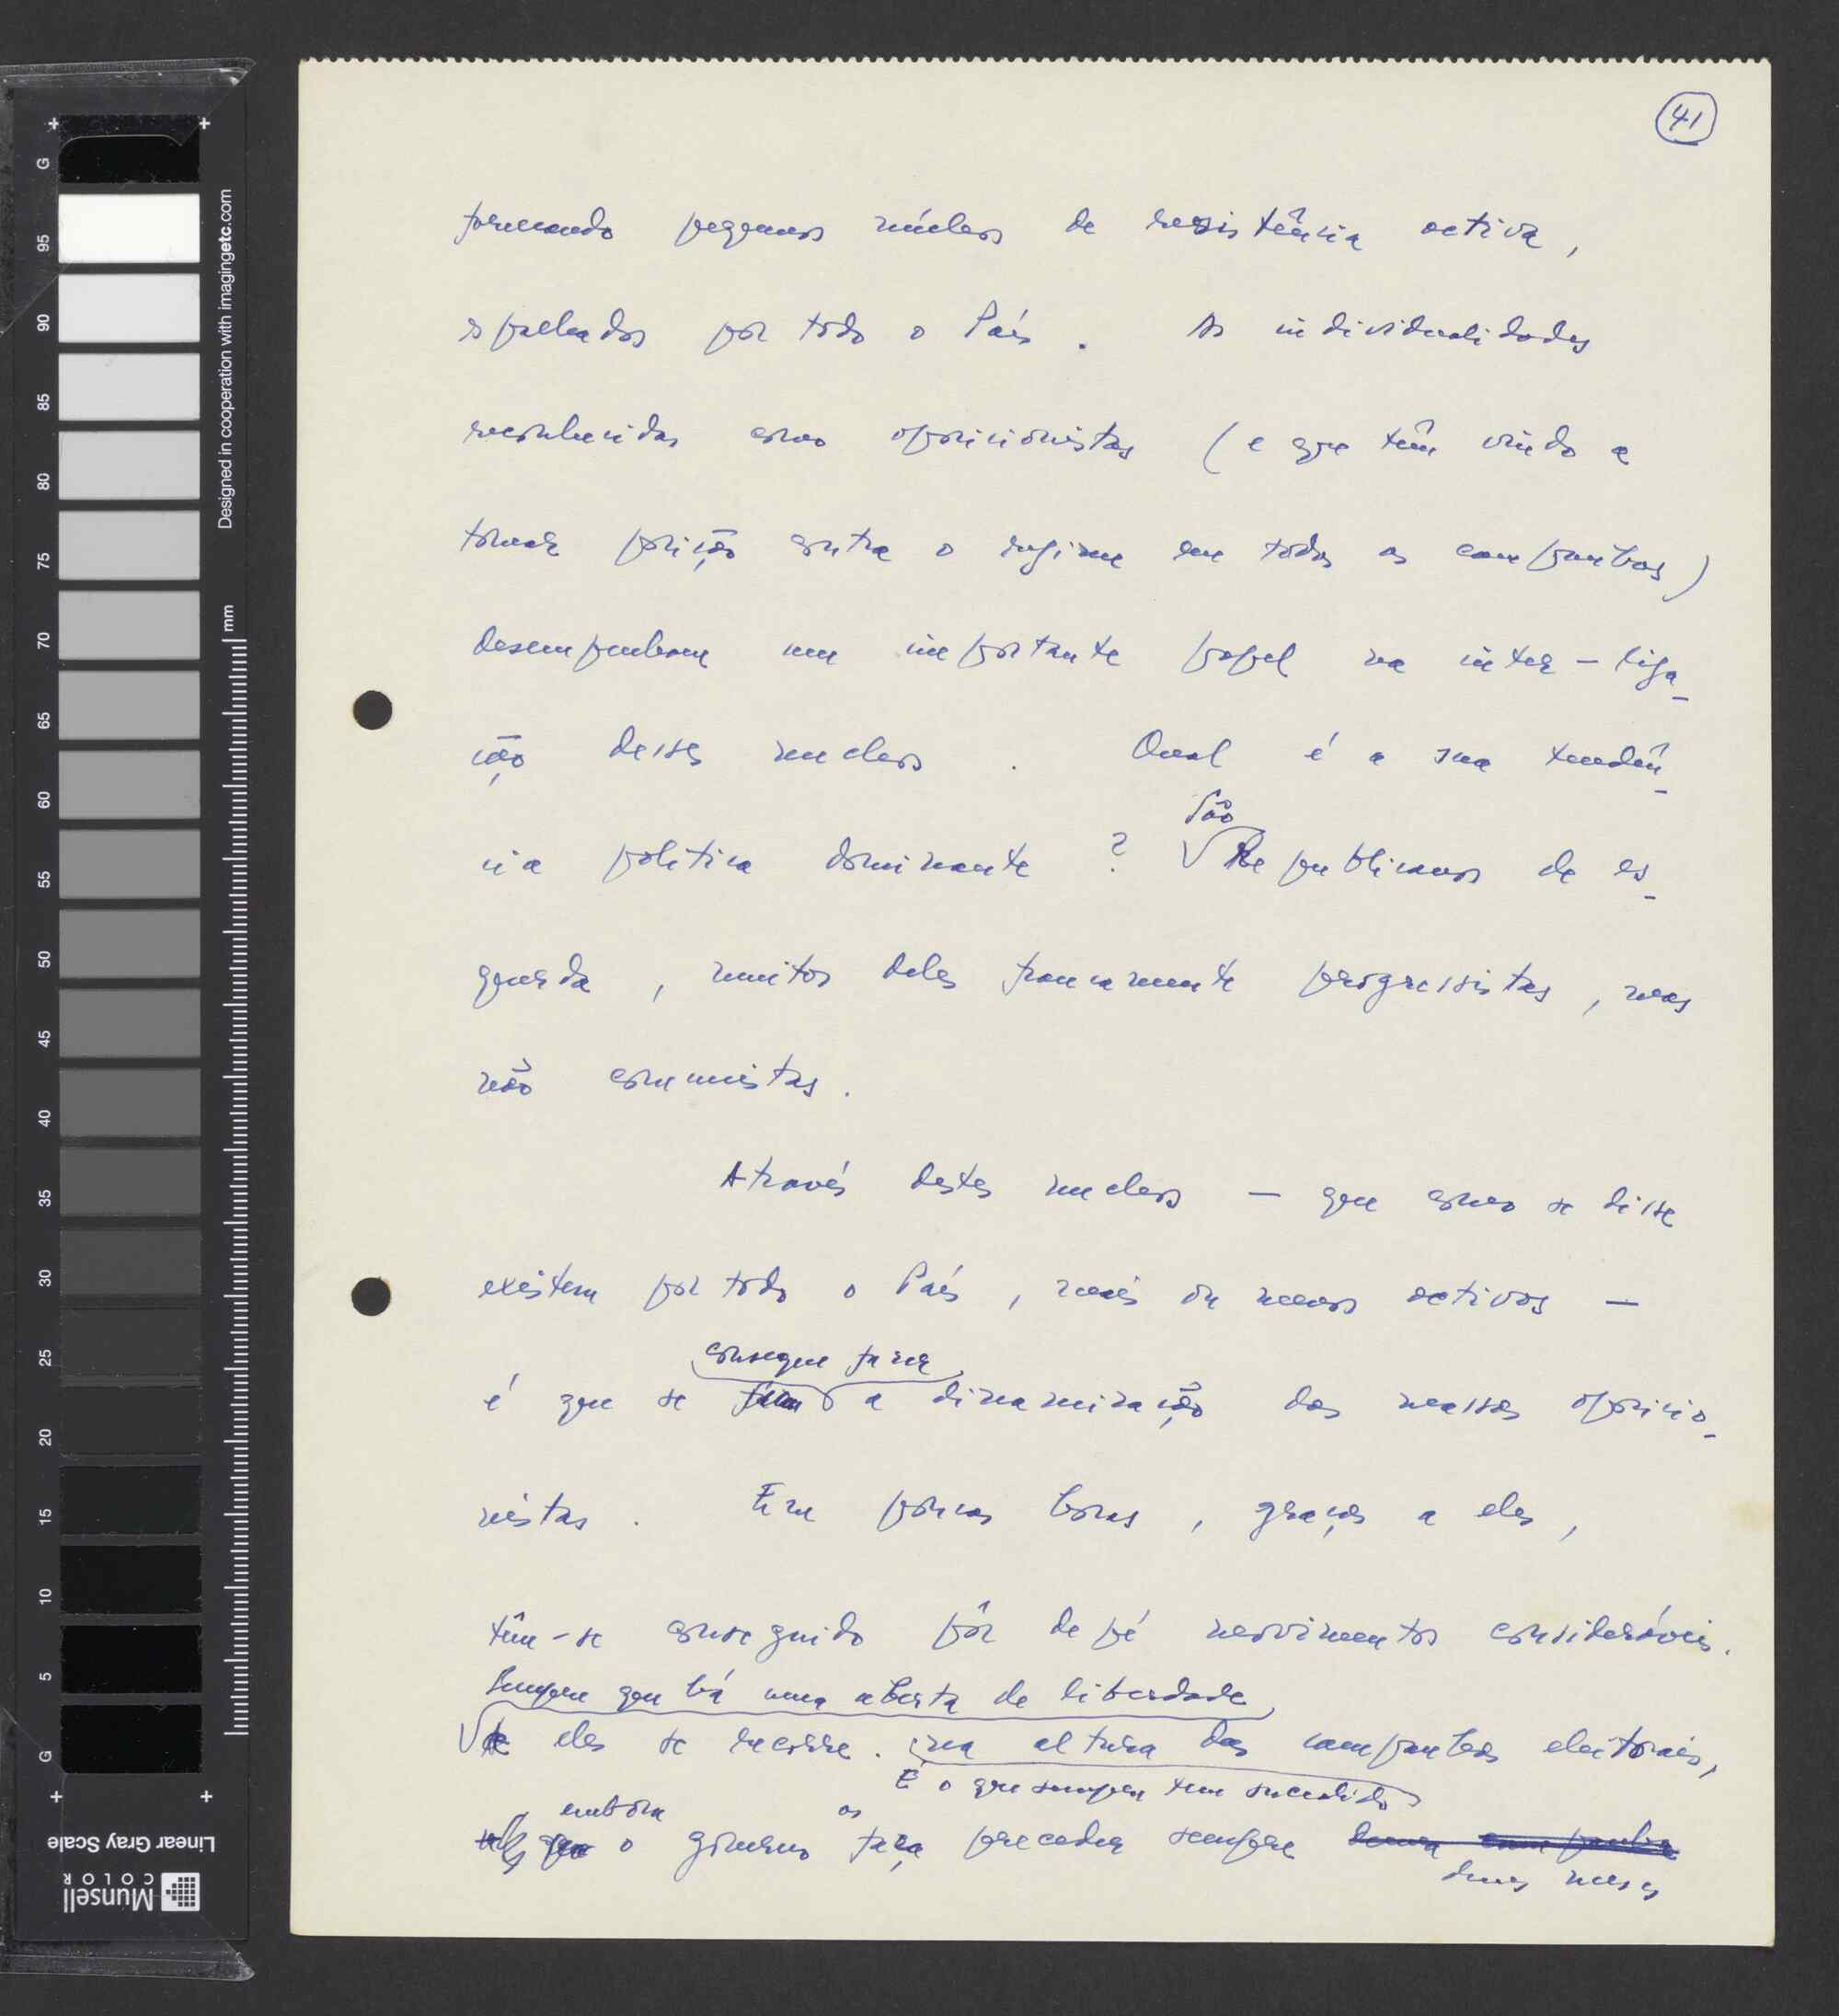 41
formando pequenos núcleos de resistência activa,
espalhados por todo o País. As individualidades
reconhecidas como oposicionistas (e que têm vindo a
tomar posição contra o regime em todas as campanhas)
desempenham um importante papel na inter-liga-
ção desses nucleos. Qual é a sua tendên-
São
cia politica dominante? Republicanos de es-
querda, muitos deles francamente progressistas, mas
não comunistas.
Através destes nucleos — que como se disse
existem por todo o País, mais ou menos activos —
consegue fazer
é que se a dinamização das massas oposicio-
nistas. Em poucas horas, graças a eles,
têm-se conseguido pôr de pé movimentos consideráveis.
Sempre que há uma aberta de liberdade
a eles se recorre. na altura das campanhas eleitorais,
É o que sempre tem sucedido
embora as
que o governo faça preceder sempre duma campanha
duas meses
G 95 90 85 80 75 70 65 60 55 50 45 40 35 30 25 20 15 10 5 G
Designed in cooperation with imagingetc.com
mm
Linear Gray Scale
Munsell
COLOR